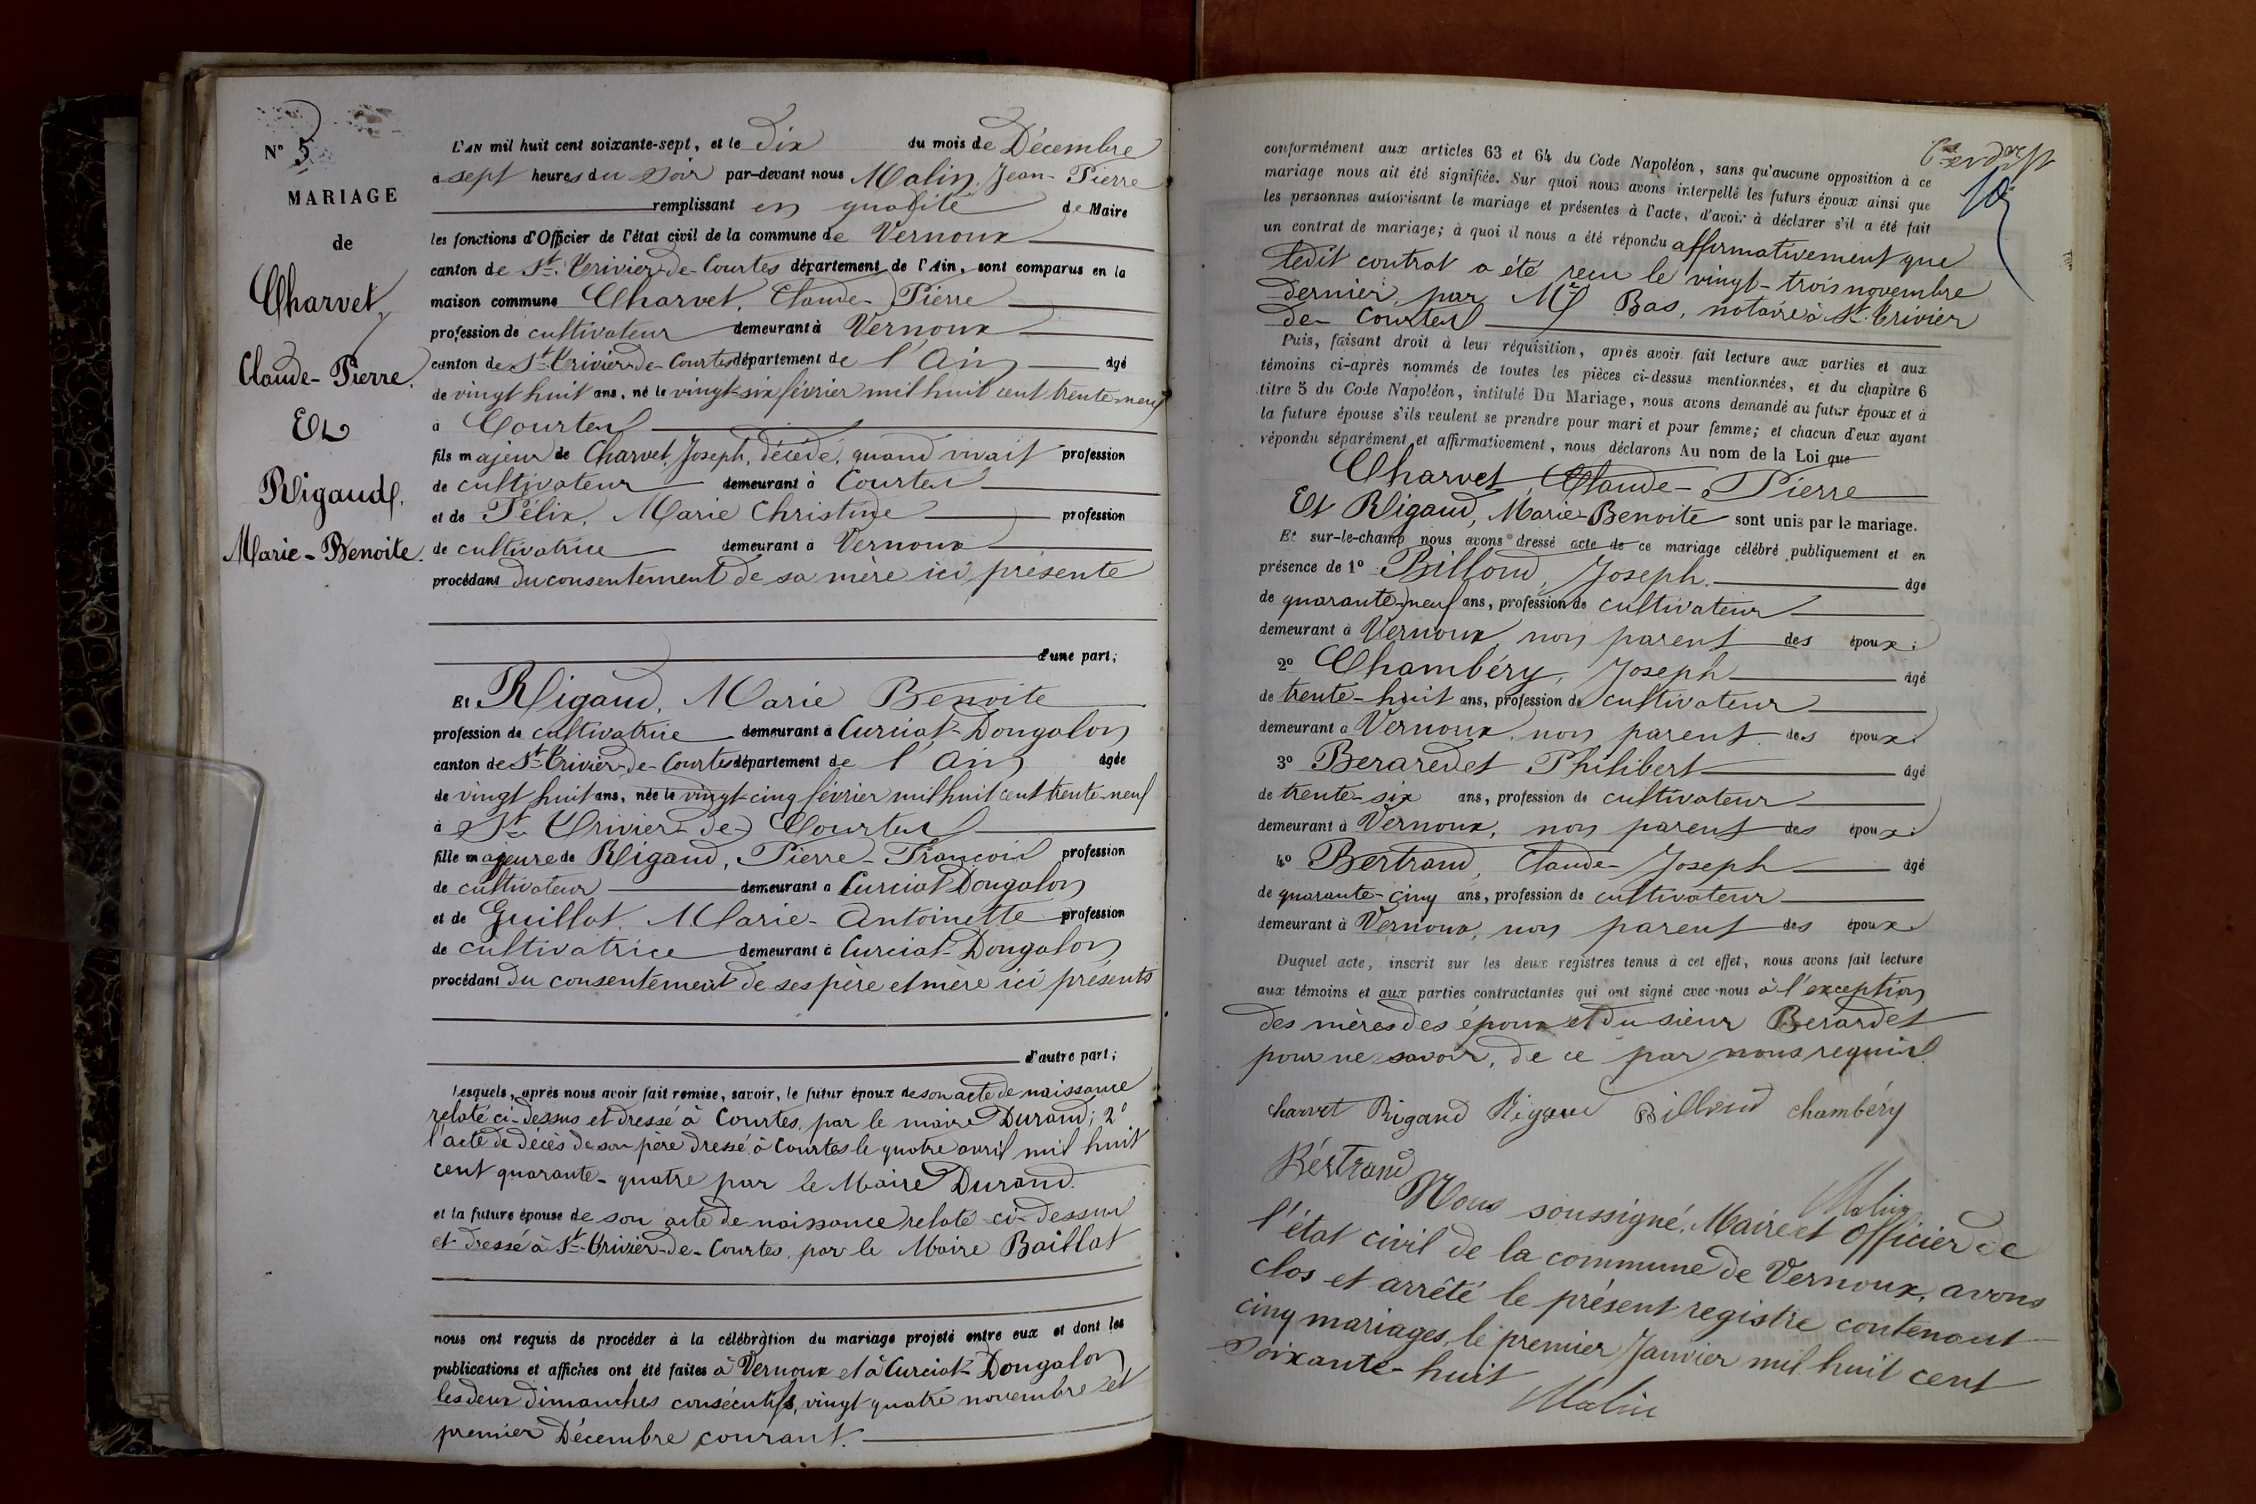 N° 5
MARIAGE
de
Charvet,
Claude-Pierre.
Et
Rigaud,
Marie-Benoite.
L'AN mil huit cent soixante-sept, et le dix du mois de Décembre
à sept heures du soir par-devant nous Malin, Jean-Pierre
remplissant en qualité de Maire
les fonctions d'Officier de l'état civil de la commune de Vernoux
canton de St. Trivier-de-Courtes département de l'Ain, sont comparus en la
maison commune Charvet, Claude-Pierre
profession de cultivateur demeurant à Vernoux
canton de St-Trivier-de-Courtes département de l'Ain âgé
de vingt huit ans, né le vingt-six février mil huit cent trente-neuf
à Courtes
fils majeur de Charvet, Joseph, décédé, quand vivait profession
de cultivateur demeurant à Courtes
et de Félix, Marie Christine profession
de cultivatrice demeurant à Vernoux
procédant du consentement de sa mère ici présente
d'une part;
Et Rigaud, Marie Benoite
profession de cultivatrice demeurant à Curciat-Dongalon
canton de St-Trivier-de-Courtes département de l'Ain âgée
de vingt huit ans, née le vingt-cinq février mil huit cent trente-neuf
à St-Trivier-de-Courtes
fille majeure de Rigaud, Pierre-François profession
de cultivateur demeurant à Curciat-Dongalon
et de Guillot, Marie-Antoinette profession
de cultivatrice demeurant à Curciat-Dongalon
procédant du consentement de ses père et mère ici présents
d'autre part;
Lesquels, après nous avoir fait remise, savoir, le futur époux de son acte de naissance
relaté ci-dessus et dressé à Courtes, par le maire Durand; 2°
l'acte de décès de son père dressé à Courtes le quatre avril mil huit
cent quarante-quatre par le Maire Durand.
et la future épouse de son acte de naissance relaté ci-dessus
et dressé à St-Trivier-de-Courtes, par le Maire Baillat
nous ont requis de procéder à la célébration du mariage projeté entre eux et dont les
publications et affiches ont été faites à Vernoux et à Curciat-Dongalon
les deux dimanches consécutifs, vingt quatre novembre et
premier Décembre courant.
10
conformément aux articles 63 et 64 du Code Napoléon, sans qu'aucune opposition à ce
mariage nous ait été signifiée. Sur quoi nous avons interpellé les futurs époux ainsi que
les personnes autorisant le mariage et présentes à l'acte, d'avoir à déclarer s'il a été fait
un contrat de mariage; à quoi il nous a été répondu affirmativement que
ledit contrat a été reçu le vingt-trois novembre
dernier, par Me Bas, notaire à St-Trivier
de Courtes
Puis, faisant droit à leur réquisition, après avoir fait lecture aux parties et aux
témoins ci-après nommés de toutes les pièces ci-dessus mentionnées, et du chapitre 6
titre 5 du Code Napoléon, intitulé Du Mariage, nous avons demandé au futur époux et à
la future épouse s'ils veulent se prendre pour mari et pour femme; et chacun d'eux ayant
répondu séparément et affirmativement, nous déclarons Au nom de la Loi que
Charvet, Claude-Pierre
Et Rigaud, Marie-Benoite sont unis par le mariage.
Et sur-le-champ nous avons dressé acte de ce mariage célébré publiquement et en
présence de 1° Billoud, Joseph. âgé
de quarante-neuf ans, profession de cultivateur
demeurant à Vernoux non parent des époux;
2° Chambéry, Joseph âgé
de trente-huit ans, profession de cultivateur
demeurant à Vernoux, non parent des époux;
3° Berardet Philibert âgé
de trente-six ans, profession de cultivateur
demeurant à Vernoux, non parent des époux;
4° Bertrand, Claude-Joseph âgé
de quarante-cinq ans, profession de cultivateur
demeurant à Vernoux, non parent des époux
Duquel acte, inscrit sur les deux registres tenus à cet effet, nous avons fait lecture
aux témoins et aux parties contractantes qui ont signé avec nous à l'exception
des mères des époux et du sieur Berardet
pour ne savoir, de ce par nous requis.
charvet Rigaud Rigaud Billoud chambéry
Bértrand
Malin
Nous soussigné, Maire et Officier de
l'état civil de la commune de Vernoux, avons
clos et arrêté le présent registre contenant
cinq mariages, le premier Janvier mil huit cent
soixante-huit
Malin